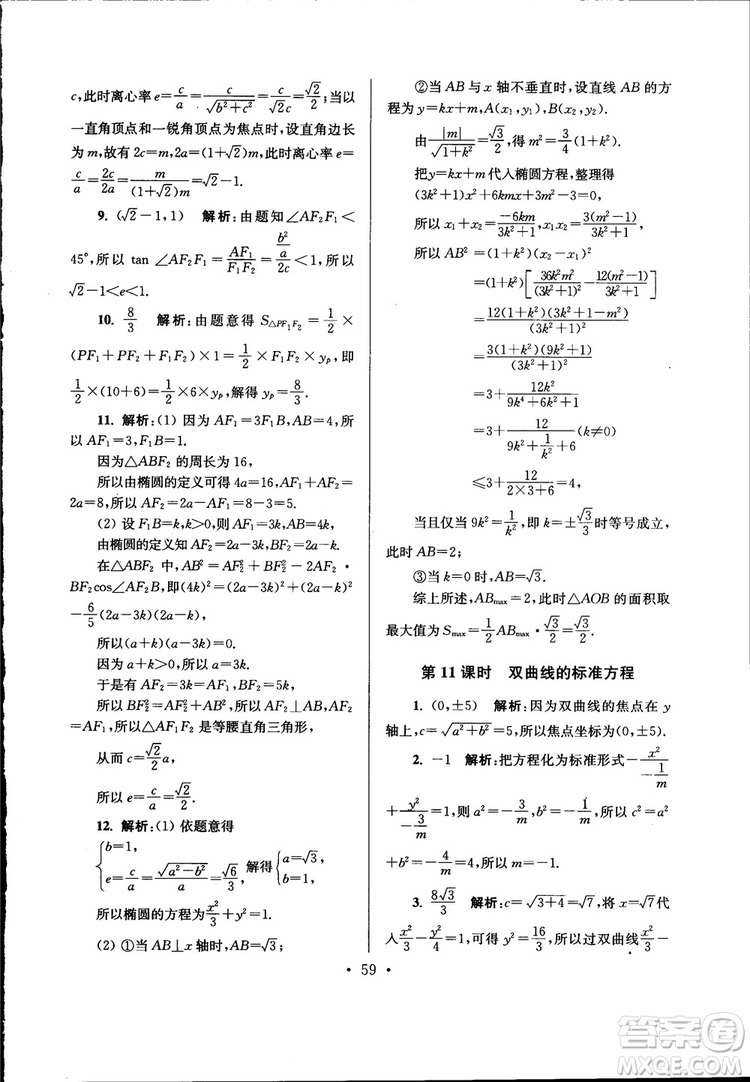 c,此时离心率 e=c/a=c/√(b²+c²)=c/(√2c)=√2/2;当以
一直角顶点和一锐角顶点为焦点时,设直角边长
为 m,故有 2c=m,2a=(1+√2)m,此时离心率 e=
c/a=2c/2a=m/((1+√2)m)=√2-1.
9. (√2-1,1) 解析:由题知∠AF₂F₁<
45°,所以 tan ∠AF₂F₁=AF₁/F₁F₂=(b²/a)/2c<1,所以
√2-1<e<1.
10. 8/3 解析:由题意得 S△PF₁F₂=1/2×
(PF₁+PF₂+F₁F₂)×1=1/2×F₁F₂×yₚ,即
1/2×(10+6)=1/2×6×yₚ,解得 yₚ=8/3.
11. 解析:(1) 因为 AF₁=3F₁B,AB=4,所
以 AF₁=3,F₁B=1.
因为△ABF₂ 的周长为 16,
所以由椭圆的定义可得 4a=16,AF₁+AF₂=
2a=8,所以 AF₂=2a-AF₁=8-3=5.
(2) 设 F₁B=k,k>0,则 AF₁=3k,AB=4k,
由椭圆的定义知 AF₂=2a-3k,BF₂=2a-k.
在△ABF₂ 中,由余弦定理得 AB²=AF₂²+BF₂²-2AF₂·
BF₂cos∠AF₂B,即(4k)²=(2a-3k)²+(2a-k)²
-6/5(2a-3k)(2a-k),
所以(a+k)(a-3k)=0.
因为 a+k>0,所以 a=3k.
于是有 AF₂=3k=AF₁,BF₂=5k,
所以 BF₂²=AF₂²+AB²,所以 AF₁⊥AF₂,AF₂=
AF₁,所以△AF₁F₂ 是等腰直角三角形,
从而 c=√2/2 a,
所以 e=c/a=√2/2.
12. 解析:(1) 依题意得
{b=1, e=c/a=√(a²-b²)/a=√6/3, 解得{a=√3, b=1.
所以椭圆的方程为x²/3+y²=1.
(2) ①当 AB⊥x 轴时,AB=√3;
②当 AB 与 x 轴不垂直时,设直线 AB 的方
程为 y=kx+m,A(x₁,y₁),B(x₂,y₂).
由|m|/√(1+k²)=√3/2,得 m²=3/4(1+k²).
把 y=kx+m 代入椭圆方程,整理得
(3k²+1)x²+6kmx+3m²-3=0,
所以 x₁+x₂=-6km/(3k²+1),x₁x₂=3(m²-1)/(3k²+1).
所以 AB²=(1+k²)(x₂-x₁)²
=(1+k²)[36k²m²/(3k²+1)²-12(m²-1)/(3k²+1)]
=12(1+k²)(3k²+1-m²)/(3k²+1)²
=3(1+k²)(9k²+1)/(3k²+1)²
=3+12k²/(9k⁴+6k²+1)
=3+12/(9k²+1/k²+6)(k≠0)
≤3+12/(2×3+6)=4.
当且仅当 9k²=1/k²,即 k=±√3/3时等号成立,
此时 AB=2;
③当 k=0 时,AB=√3.
综上所述,ABmax=2,此时△AOB 的面积取
最大值为 Smax=1/2ABmax·√3/2=√3/2.
第 11 课时 双曲线的标准方程
1. (0,±5) 解析:因为双曲线的焦点在 y
轴上,c=√(a²+b²)=5,所以焦点坐标为(0,±5).
2. -1 解析:把方程化为标准形式-x²/(-1/m)
+y²/(-3/m)=1,则 a²=-3/m,b²=-1/m,所以 c²=a²
+b²=-4/m=4,解得 m=-1.
3. 8√3/3 解析:c=√(3+4)=√7,将 x=√7代
入x²/3-y²/4=1,可得 y²=16/3,所以过双曲线x²/3-
· 59 ·
答案圈
MXQE.COM